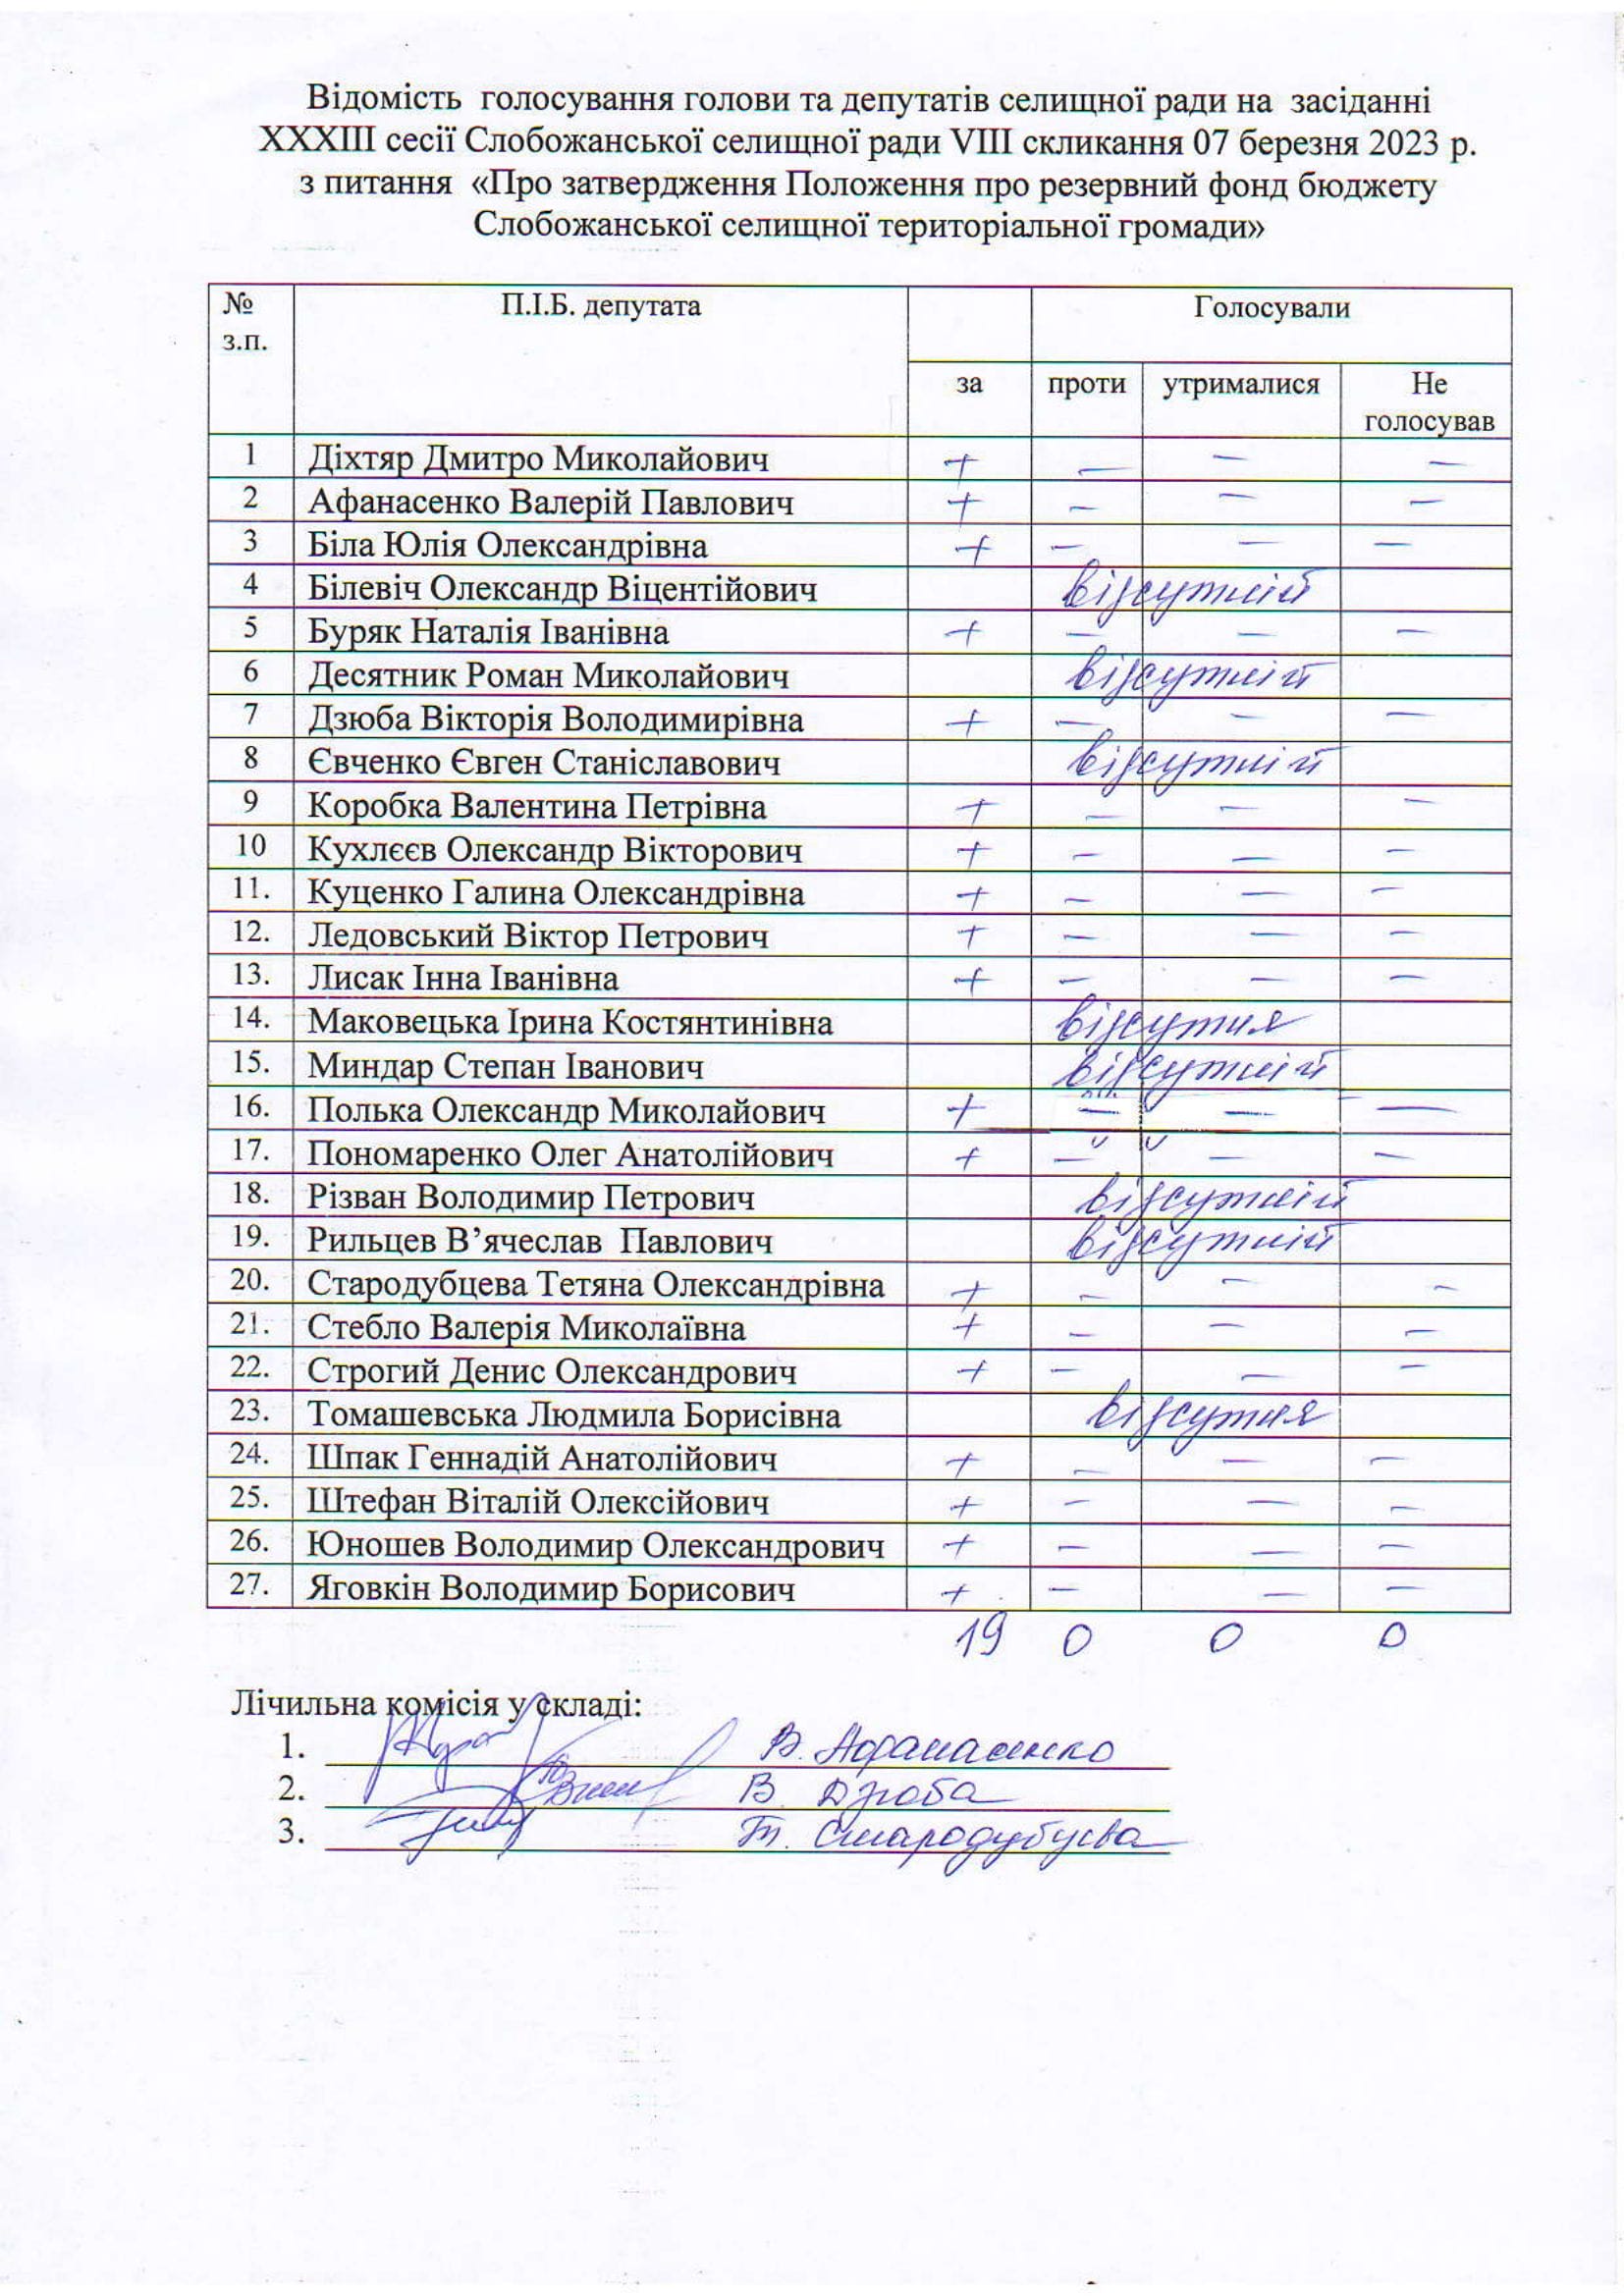 Відомість голосування голови та депутатів селищної ради на засіданні
XXXIII сесії Слобожанської селищної ради VIII скликання 07 березня 2023 р.
з питання «Про затвердження Положення про резервний фонд бюджету
Слобожанської селищної територіальної громади»
№ з.п. П.І.Б. депутата Голосували
за проти утрималися Не голосував
1 Діхтяр Дмитро Миколайович + — — —
2 Афанасенко Валерій Павлович + — — —
3 Біла Юлія Олександрівна + — — —
4 Білевіч Олександр Віцентійович відсутній
5 Буряк Наталія Іванівна + — — —
6 Десятник Роман Миколайович відсутній
7 Дзюба Вікторія Володимирівна + — — —
8 Євченко Євген Станіславович відсутній
9 Коробка Валентина Петрівна + — — —
10 Кухлєєв Олександр Вікторович + — — —
11. Куценко Галина Олександрівна + — — —
12. Ледовський Віктор Петрович + — — —
13. Лисак Інна Іванівна + — — —
14. Маковецька Ірина Костянтинівна відсутня
15. Миндар Степан Іванович відсутній
16. Полька Олександр Миколайович + — — —
17. Пономаренко Олег Анатолійович + — — —
18. Різван Володимир Петрович відсутній
19. Рильцев В’ячеслав Павлович відсутній
20. Стародубцева Тетяна Олександрівна + — — —
21. Стебло Валерія Миколаївна + — — —
22. Строгий Денис Олександрович + — — —
23. Томашевська Людмила Борисівна відсутня
24. Шпак Геннадій Анатолійович + — — —
25. Штефан Віталій Олексійович + — — —
26. Юношев Володимир Олександрович + — — —
27. Яговкін Володимир Борисович + — — —
19 0 0 0
Лічильна комісія у складі:
1. В. Афанасенко
2. В. Дзюба
3. Т. Стародубцева